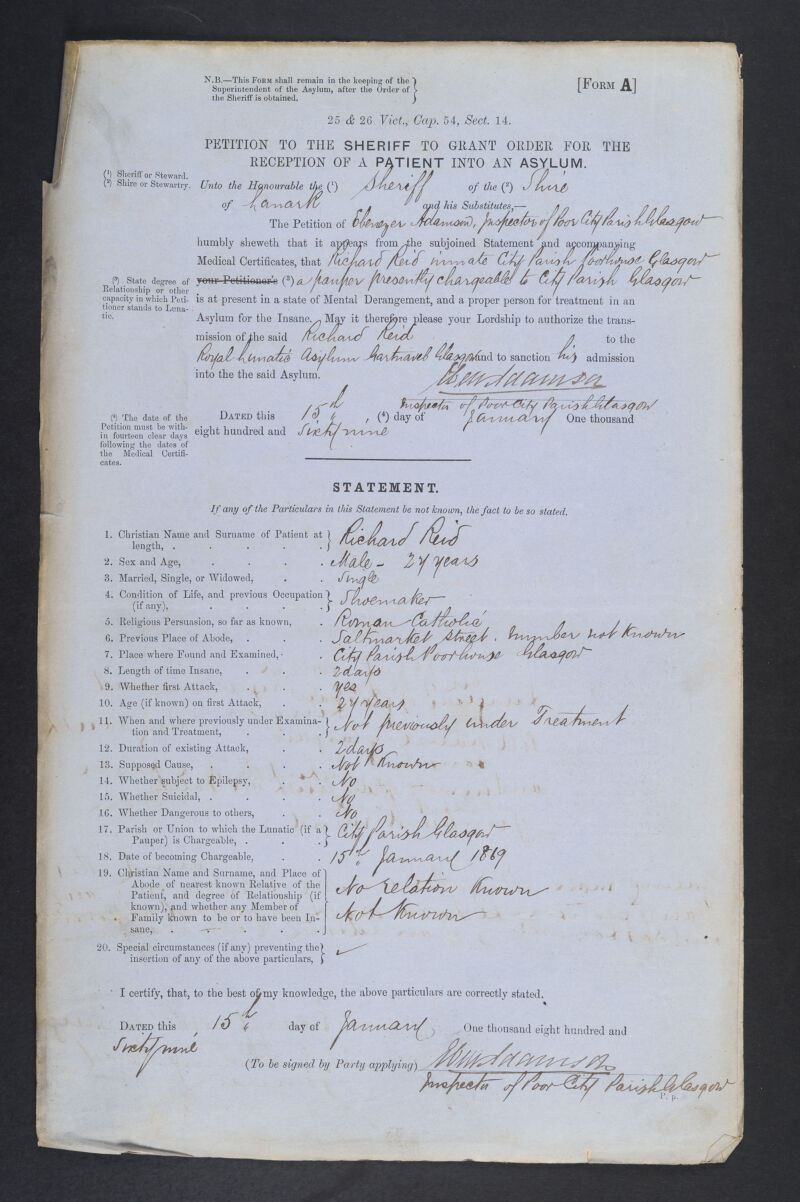 N.B.—This Form shall remain in the keeping of the
Superintendent of the Asylum, after the Order of
the Sheriff is obtained.
[Form A]
25 & 26 Vict., Cap. 54, Sect. 14.
PETITION TO THE SHERIFF TO GRANT ORDER FOR THE
RECEPTION OF A PATIENT INTO AN ASYLUM.
(1) Sheriff or Steward.
(2) Shire or Stewartry.
Unto the Honourable the (1) Sheriff of the (2) Shire
of Lanark and his Substitutes,—
The Petition of Ebenezer Adamson, Inspector of Poor City Parish Glasgow
humbly sheweth that it appears from the subjoined Statement and accompanying
Medical Certificates, that Richard Reid inmate City Parish Poorhouse Glasgow
(3) State degree of
Relationship or other
capacity in which Peti-
tioner stands to Luna-
tic.
your Petitioner's (3) a pauper presently chargeable to City Parish Glasgow
is at present in a state of Mental Derangement, and a proper person for treatment in an
Asylum for the Insane. May it therefore please your Lordship to authorize the trans-
mission of the said Richard Reid to the
Royal Lunatic Asylum Gartnavel Glasgow and to sanction his admission
into the the said Asylum.
Eben Adamson
Inspector of Poor City Parish Glasgow
(4) The date of the
Petition must be with-
in fourteen clear days
following the dates of
the Medical Certifi-
cates.
Dated this 15th, (4) day of January One thousand
eight hundred and Sixty nine
STATEMENT.
If any of the Particulars in this Statement be not known, the fact to be so stated.
1. Christian Name and Surname of Patient at
length, . . . . . Richard Reid
2. Sex and Age, . . . . Male - 24 years
3. Married, Single, or Widowed, . . Single
4. Condition of Life, and previous Occupation
(if any), . . . . Shoemaker
5. Religious Persuasion, so far as known, . Roman Catholic
6. Previous Place of Abode, . . . Saltmarket Street. number not known
7. Place where Found and Examined, . . City Parish Poorhouse Glasgow
8. Length of time Insane, . . . 2 days
9. Whether first Attack, . . . yes
10. Age (if known) on first Attack, . . 24 years
11. When and where previously under Examina-
tion and Treatment, . . . Not previously under Treatment
12. Duration of existing Attack, . . 2 days
13. Supposed Cause, . . . . Not Known
14. Whether subject to Epilepsy, . . No
15. Whether Suicidal, . . . . No
16. Whether Dangerous to others, . . No
17. Parish or Union to which the Lunatic (if a
Pauper) is Chargeable, . . . City Parish Glasgow
18. Date of becoming Chargeable, . . 15th January 1869
19. Christian Name and Surname, and Place of
Abode of nearest known Relative of the
Patient, and degree of Relationship (if
known), and whether any Member of
Family known to be or to have been In-
sane, . . . . .
No relation Known
Not Known
20. Special circumstances (if any) preventing the
insertion of any of the above particulars,
I certify, that, to the best of my knowledge, the above particulars are correctly stated.
Dated this 15th day of January One thousand eight hundred and
Sixty nine
(To be signed by Party applying) Eben Adamson
Inspector of Poor City Parish Glasgow
P. p.